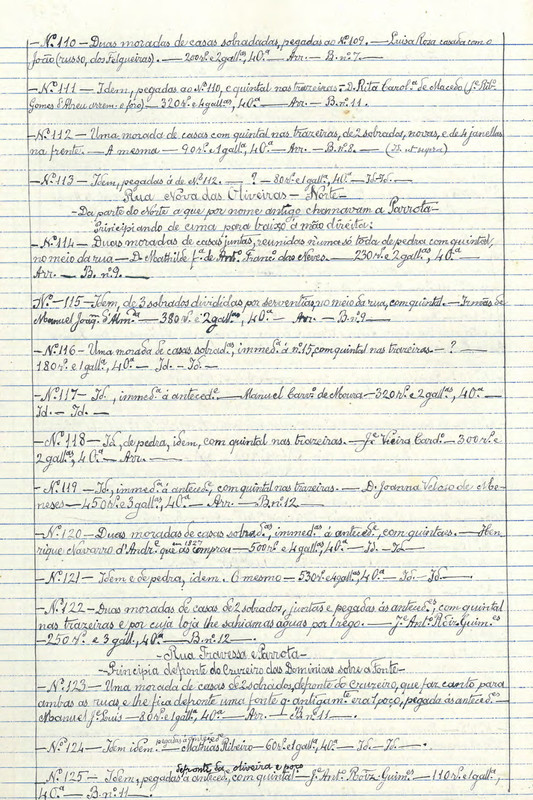 -Nº 110 - Duas moradas de casas sobradadas, pegadas ao Nº 109. - Luisa Rosa casada com o
João (russo, dos Felgueiras). - 200 rs. e 2 gallªs, 40.ª - Arr. - B. nº 7. -
-Nº 111 - Idem, pegadas ao Nº 110, e quintal nas trazeiras. - D. Rita Carolª de Macedo (Jº Ribº
Gomes d'Abreu arrem. e foro) - 320 rs. e 4 gallªs, 40.ª - Arr. - B. nº 11. -
-Nº 112 - Uma morada de casas com quintal nas trazeiras, de 2 sobrados, novas, e de 4 janellas
na frente. - A mesma - 90 rs. e 1 gallª, 40.ª - Arr. - B. nº 8. - (Id. ut supra)
-Nº 113 - Idem, pegadas á de Nº 112. - ? - 80 rs. e 1 gallª, 40.ª - Id. - Id. -
Rua Nova das Oliveiras - Norte -
-Da parte do Norte a que por nome antigo chamavam a Parrota -
Principiando de cima para baixo á mão direita:
-Nº 114 - Duas moradas de casas juntas, reunidas n'uma só toda de pedra com quintal,
no meio da rua - D. Mathilde fª de Antº Francº das Neves. - 230 rs. e 2 gallªs, 40.ª
Arr. - B. nº 9. -
-Nº 115 - Idem, de 3 sobrados divididas por serventias, no meio da rua, com quintal. - Irmãos de
Manuel Joaqº d'Almdª - 380 rs. e 2 gallªs, 40.ª - Arr. - B. nº 9 -
-Nº 116 - Uma morada de casas sobradªs, immedª á nº 15, com quintal nas trazeiras. - ? -
180 rs. e 1 gallª, 40.ª - Id. - Id. -
-Nº 117 - Id., immedª á antecedᵉ - Manuel Carvº de Moura - 320 rs. e 2 gallªs, 40.ª
Id. - Id. -
-Nº 118 - Id., de pedra, idem, com quintal nas trazeiras. - Jᵉ Vieira Cardº - 300 rs. e
2 gallªs, 40.ª - Arr. -
-Nº 119 - Id., immedª á antecedᵉ, com quintal nas trazeiras. - D. Joanna Velozo de Me-
neses - 450 rs. e 3 gallªs, 40.ª - Arr. - B. nº 12 -
-Nº 120 - Duas moradas de casas sobradªs, immedªs á antecᵉ, com quintaes. - Hen-
rique Navarro d'Andrᵉ que em 1827 as comprou - 500 rs. e 4 gallªs, 40.ª - Id. - Id. -
-Nº 121 - Idem e de pedra, idem. O mesmo - 530 rs. e 4 gallªs, 40.ª - Id. - Id. -
-Nº 122 - Duas moradas de casas de 2 sobrados, juntas e pegadas ás antecedᵉs, com quintal
nas trazeiras e por cuja loja lhe sahiam as aguas por 1 rego. - Jᵉ Antº Roiz Guimᵉs
- 250 rs. e 3 gall., 40.ª - B. nº 12 -
- Rua Travessa e Parrota -
- Principia defronte do Cruzeiro das Dominicas sobre a Fonte -
-Nº 123 - Uma morada de casas de 2 sobrados, defronte do Cruzeiro, que faz canto para
ambas as ruas e lhe fica defronte uma fonte q. antigamᵗᵉ era 1 poço, pegada ás antecedᵉs
Manuel Jᵉ Luis - 80 rs. e 1 gallª, 40.ª - Arr. - B. nº 11. -
-Nº 124 - Idem idem. - Mathias Ribeiro - 60 rs. e 1 gallª, 40.ª - Id. - Id. -
-Nº 125 - Idem, pegadas á antecedᵉ, defronte da oliveira e poço com quintal - Jᵉ Antº Roiz Guimᵉs. - 110 rs. e 1 gallª,
40.ª - B. nº 11 -